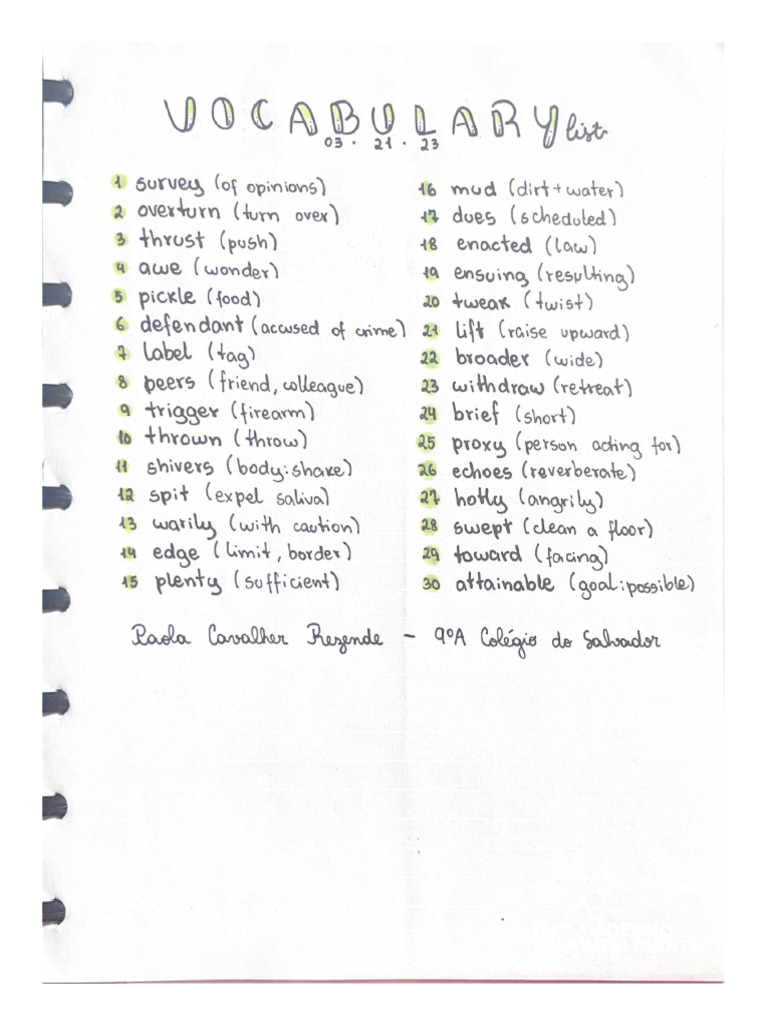 VOCABULARY list
03 . 21 . 23
1 survey (of opinions)
2 overturn (turn over)
3 thrust (push)
4 awe (wonder)
5 pickle (food)
6 defendant (accused of crime)
7 label (tag)
8 peers (friend, colleague)
9 trigger (firearm)
10 thrown (throw)
11 shivers (body: shake)
12 spit (expel saliva)
13 warily (with caution)
14 edge (limit, border)
15 plenty (sufficient)
16 mud (dirt + water)
17 dues (scheduled)
18 enacted (law)
19 ensuing (resulting)
20 tweak (twist)
21 lift (raise upward)
22 broader (wide)
23 withdraw (retreat)
24 brief (short)
25 proxy (person acting for)
26 echoes (reverberate)
27 hotly (angrily)
28 swept (clean a floor)
29 toward (facing)
30 attainable (goal: possible)
Paola Cavalher Rezende - 9ºA Colégio do Salvador
CADERNO
INTELIGENTE